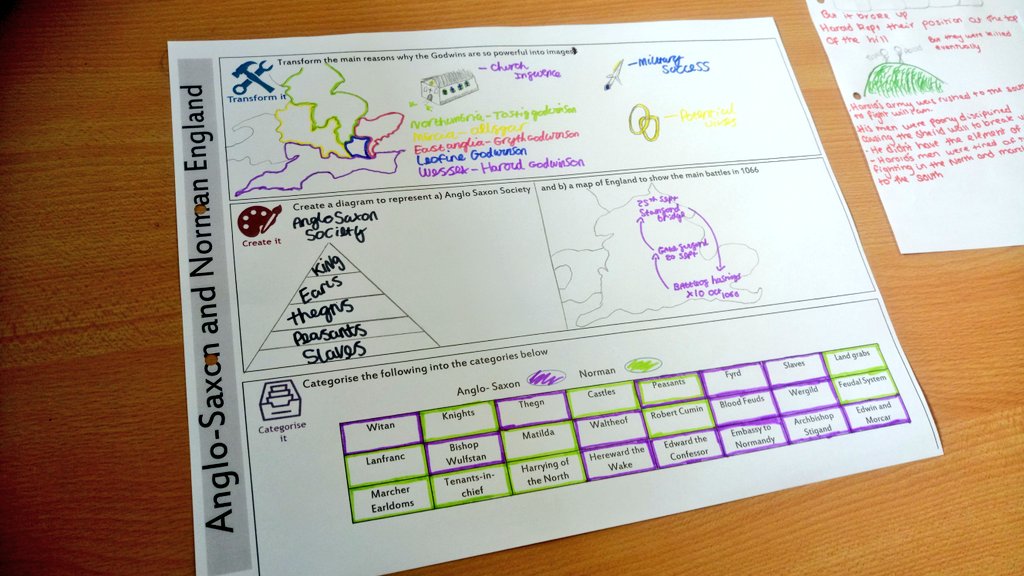 Anglo-Saxon and Norman England
Transform the main reasons why the Godwins are so powerful into images
Transform it
- Church
- Military
Success
Northumbria - Tostig godwinson
Mercia -
East anglia - Gryth godwinson
Leofine Godwinson
Wessex - Harold Godwinson
Create a diagram to represent a) Anglo Saxon Society
and b) a map of England to show the main battles in 1066
Create it
Anglo Saxon
Society
King
Earls
thegns
Peasants
Slaves
25th Sept
Stamford
bridge
20 Sept
hastings
Oct
1066
Categorise the following into the categories below
Categorise
it
Anglo- Saxon
Norman
Witan
Knights
Thegn
Castles
Peasants
Fyrd
Slaves
Land grabs
Lanfranc
Bishop
Wulfstan
Matilda
Waltheof
Robert Cumin
Blood Feuds
Wergild
Feudal System
Marcher
Earldoms
Tenants-in-
chief
Harrying of
the North
Hereward the
Wake
Edward the
Confessor
Embassy to
Normandy
Archbishop
Stigand
Edwin and
Morcar
But it broke up
Harold kept their position at the top
of the hill
But they were killed
eventually
army was rushed to the south
to fight William.
His men were poorly disciplined
causing the shield wall to break
- He didn't have the element of
- Harold's men were tired
fighting in the North and
to the south